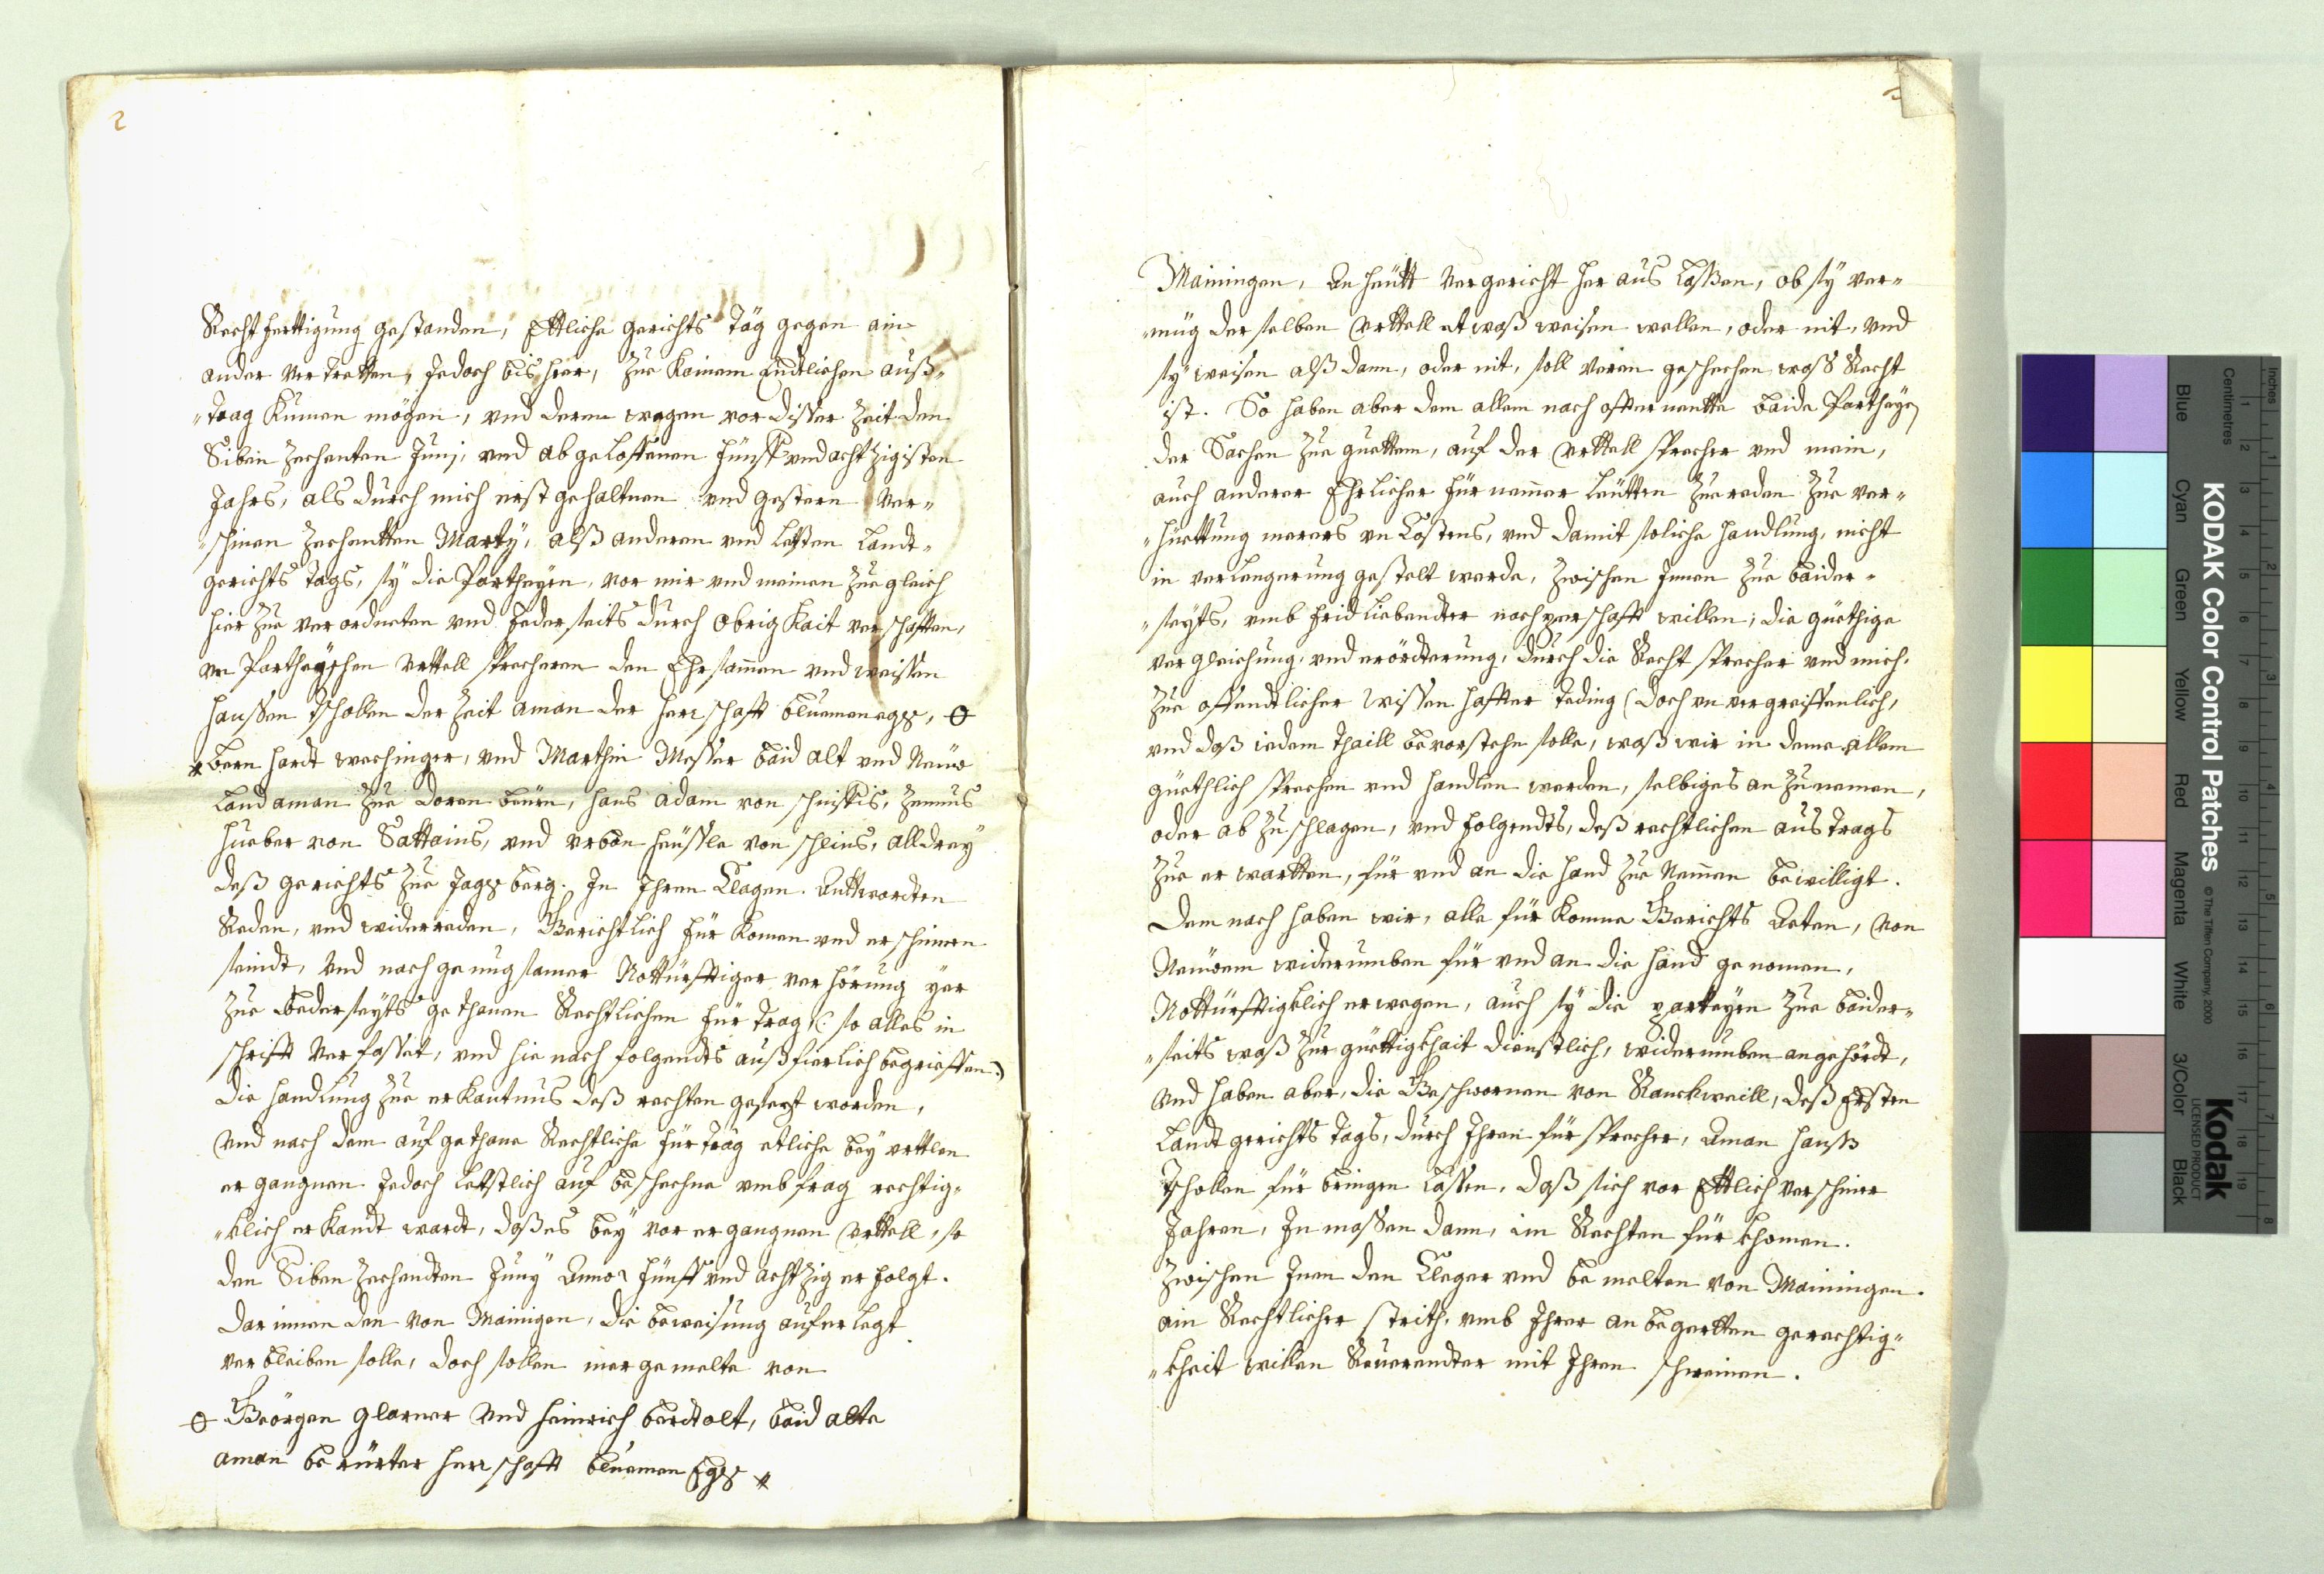 2
Rechtferttigung gestanden, Ettliche gerichts Täg gegen ein
ander vertretten, Jedoch bishier, zue Kainem Endtlichen auß„
„trag Kumen mögen, und deren wegen vor disser Zeit den
Siben Zechenten Junj, und abgeloffenen fünff und achtzigisten
Jahrs, als durch mich erst gehaltnen und gestern ver„
„schinen Zechentten Marty, alß anderen und letsten Landt„
gerichts tags, sy die Partheyen, vor mir und meinen zue gleich
hier zue verordneten und Jederseits durch Obrigkait verschafften,
un Partheyschen Urttell sprecheren den Ehrsammen und weissen
Hanssen Tschollen der Zeit aman der herrschafft bluemenegg, ⊖
* Bernhardt wechinger, und Marthin Messer baid alt und Neüw
Landaman zue Dorenbeürn, Hans Adam von schnissis, Zennus
Hueber von Sattains, und Urban heüssle von schlins, all drey
deß gerichts zue Jagberg. In Ihren Clagen Anttwordten
Reden, und widerreden, Gerichtlich für komen und erschinen
seindt, Und nach genugsamer Notturfftiger verhörung yer
zue bederseyts gethanen Rechtlichen für trag (: so alles in
schrifft verfasset, und hienach folgendts außfierlich begriffen:)
die handlung zue erkantnus deß rechten gesetzt worden,
Und nach dem auf gethane Rechtliche fürträg etliche bey urttlen
ergangnen Jedoch letstlich auf beschechne umbfrag rechtig„
„klich erkandt wardt, daß es bey vor ergangnen Urttell, so
den Siben Zechendten Juny Anno fünff und achtzig erfolgt.
dar innen den von Mainigen, die beweisung auferlegt
verbleiben solle, doch sollen mergemelte von
⊖ Geörgen Glarner und Heinrich berchtolt, baid alte
aman berürter herrschafft bluemen Egg *
Mainingen, An heütt vergericht heraus Lassen, ob sy ver„
„müg derselben Urttell etwaß weisen wellen, oder nit, und
sy weisen alß dann, oder nit, soll veren geschechen waß Recht
ist. So haben aber dem allem nach offternentte baide Partheyen
der Sachen zue guettem, auf der Urttell sprecher und mein,
auch anderer Ehrlicher fürnemmer Leütten zue reden zue ver„
„hüettung merers un Costens, und damit soliche handlung, nicht
in verlengerung gestelt werde, zwischen Innen zue baider„
„seyts, umb fridliebendter nachperschafft willen, die güethige
vergleichung, und erörtterung, durch die Recht sprecher und mich,
zue offendtlicher wissenhaffter teding (doch un vergreiffenlich,
und daß iedem thaill bevorstehn solle, waß wir in deme allem
güethlich sprechen und handlen werden, selbiges anzunemen,
oder abzuschlagen, und folgendts, deß rechtlichen austrags
zue erwartten, für und an die hand zue Nemmen bewilligt.
Dem nach haben wir, alle für komne Gerichts Acten, von
Neüwem widerumben für und an die hand genomen,
Notturfftigklich erwegen, auch sy die parteyen zue baider„
„seits waß zur güettigkhait dienstlich, widerumben angehördt,
Und haben aber, die Geschwornen von Rauckweill, deß Ersten
Landtgerichts tags, durch Ihren fürsprecher, Aman Hanß
Tschollen für bringen Lassen, daß sich vor Ettlich verschiner
Jahren, In massen dann, im Rechten fürkhomen.
Zwischen Inen den Cleger und bemelten von Mainingen.
ain Rechtlicher strith, umb Ihrer an begertten gerechtig„
„kheit willen Reuerendter mit Ihren schweinen.
KODAK Color Control Patches
© The Tiffen Company, 2000
Kodak
LICENSED PRODUCT
Inches
Centimetres
Blue
Cyan
Green
Yellow
Red
Magenta
White
3/Color
Black